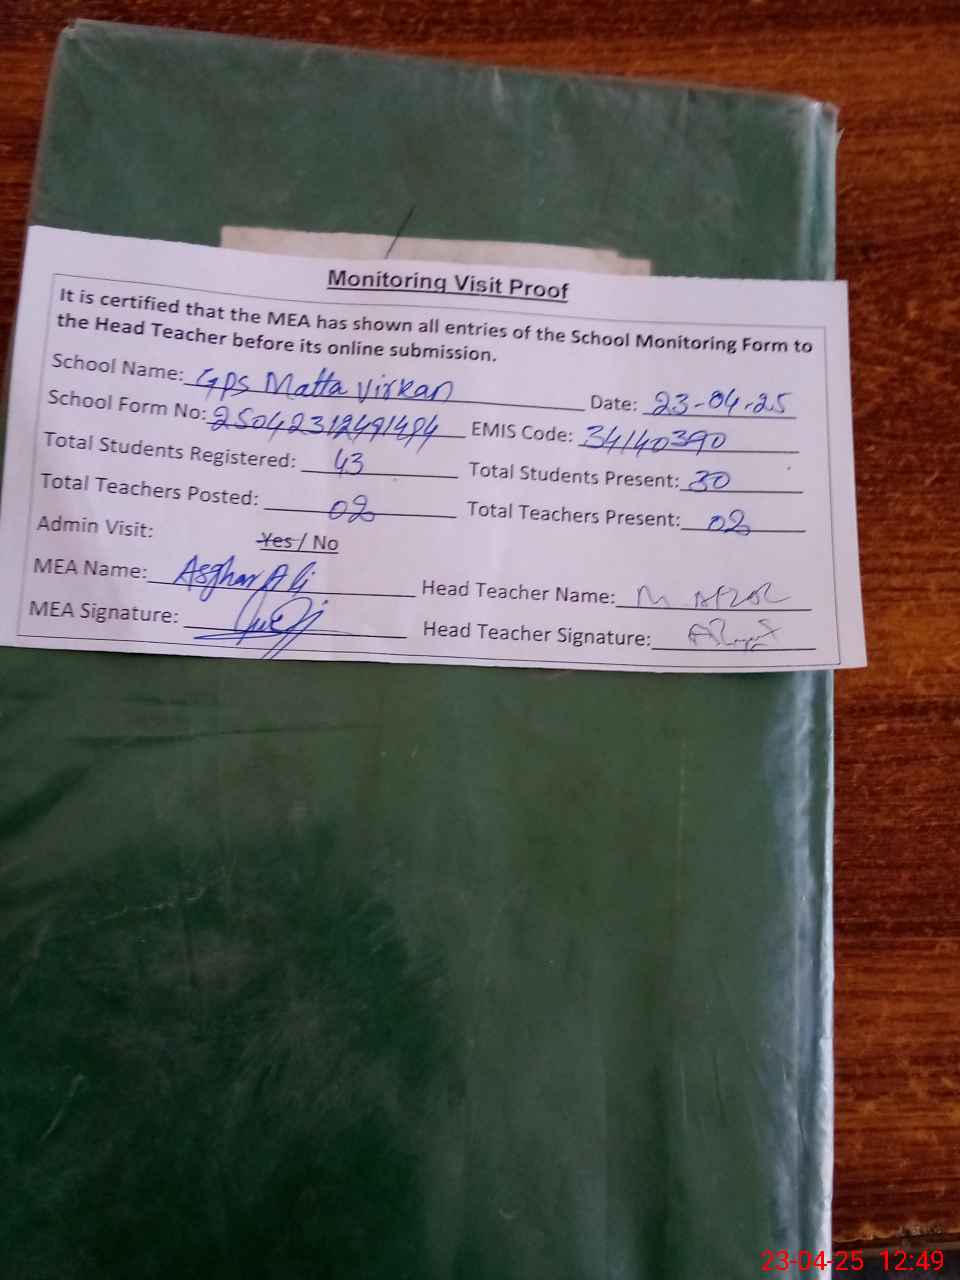 Monitoring Visit Proof
It is certified that the MEA has shown all entries of the School Monitoring Form to
the Head Teacher before its online submission.
School Name: GPS Matta Virkan Date: 23-04-25
School Form No: 25042312491494 EMIS Code: 34140390
Total Students Registered: 43 Total Students Present: 30
Total Teachers Posted: 02 Total Teachers Present: 02
Admin Visit: Yes / No
MEA Name: Asghar Ali Head Teacher Name: M Afzal
MEA Signature: Head Teacher Signature:
23-04-25 12:49